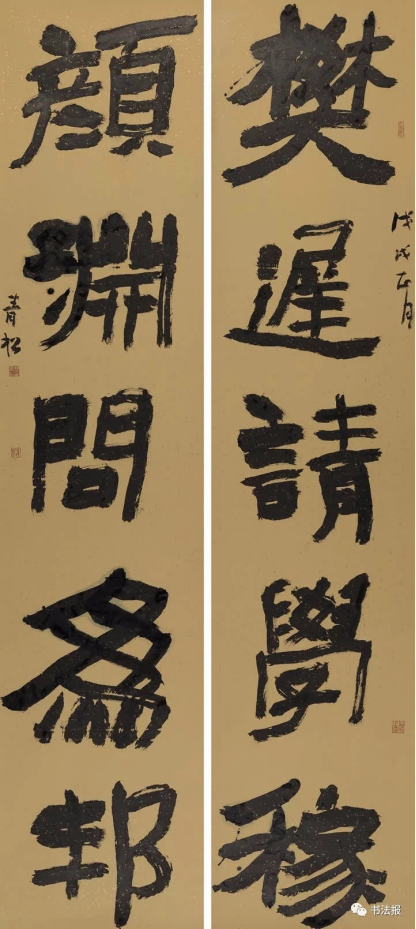 樊遲請學稼
戊戌正月
顏淵問爲邦
青松
书法报